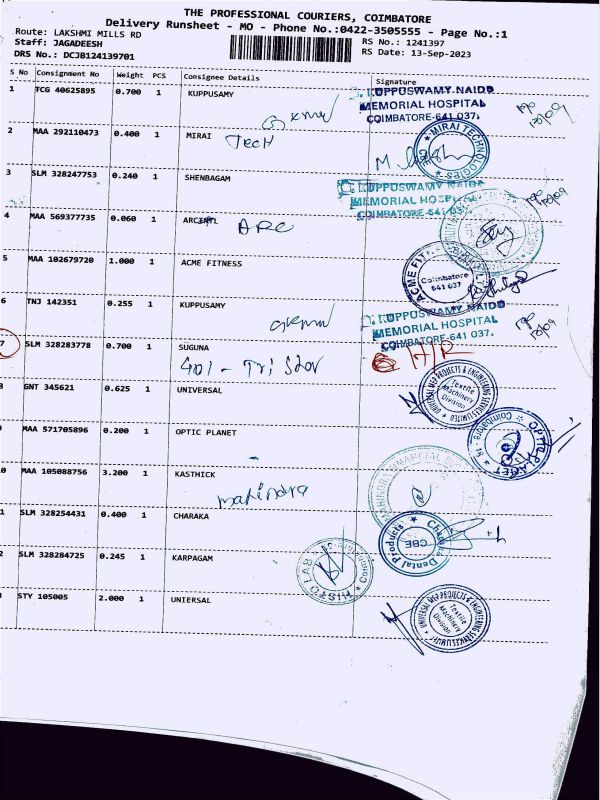 THE PROFESSIONAL COURIERS, COIMBATORE
Delivery Runsheet - MO - Phone No.:0422-3505555 - Page No.:1
Route: LAKSHMI MILLS RD
Staff: JAGADEESH
DRS No.: DCJB124139701
RS No.: 1241397
RS Date: 13-Sep-2023
S No Consignment No Weight PCS Consignee Details Signature
1 FCG 40625895 0.700 1 KUPPUSAMY
KUPPUSWAMY NAIDU
MEMORIAL HOSPITAL
COIMBATORE-641 037.
GKNM
2 MAA 292110473 0.400 1 MIRAI
Tech
MIRAI TECHNOLOGIES
3 SLM 328247753 0.240 1 SHENBAGAM
KUPPUSWAMY NAIDU
MEMORIAL HOSPITAL
COIMBATORE-641 037.
4 MAA 569377735 0.060 1
ARC
5 MAA 102679720 1.000 1 ACME FITNESS
ACME FIT
Coimbatore
641 037
6 TNJ 142351 0.255 1 KUPPUSAMY
GKNM
KUPPUSWAMY NAIDU
MEMORIAL HOSPITAL
COIMBATORE-641 037.
7 SLM 328283778 0.700 1 SUGUNA
401 - Tri Star
H/R
GNT 345621 0.625 1 UNIVERSAL
UNIVERSAL MEP PROJECTS & ENGINEERING SERVICES LIMITED
Textile
Machinery
Division
MAA 571705896 0.200 1 OPTIC PLANET
OPTIC PLANET
Coimbatore
MAA 105088756 3.200 1 KASTHICK
Mahindra
SLM 328254431 0.400 1 CHARAKA
Charaka Dental Products
CBE
SLM 328284725 0.245 1 KARPAGAM
HISTO LAB
STY 105005 2.000 1 UNIERSAL
UNIVERSAL MEP PROJECTS & ENGINEERING SERVICES LIMITED
Textile
Machinery
Division